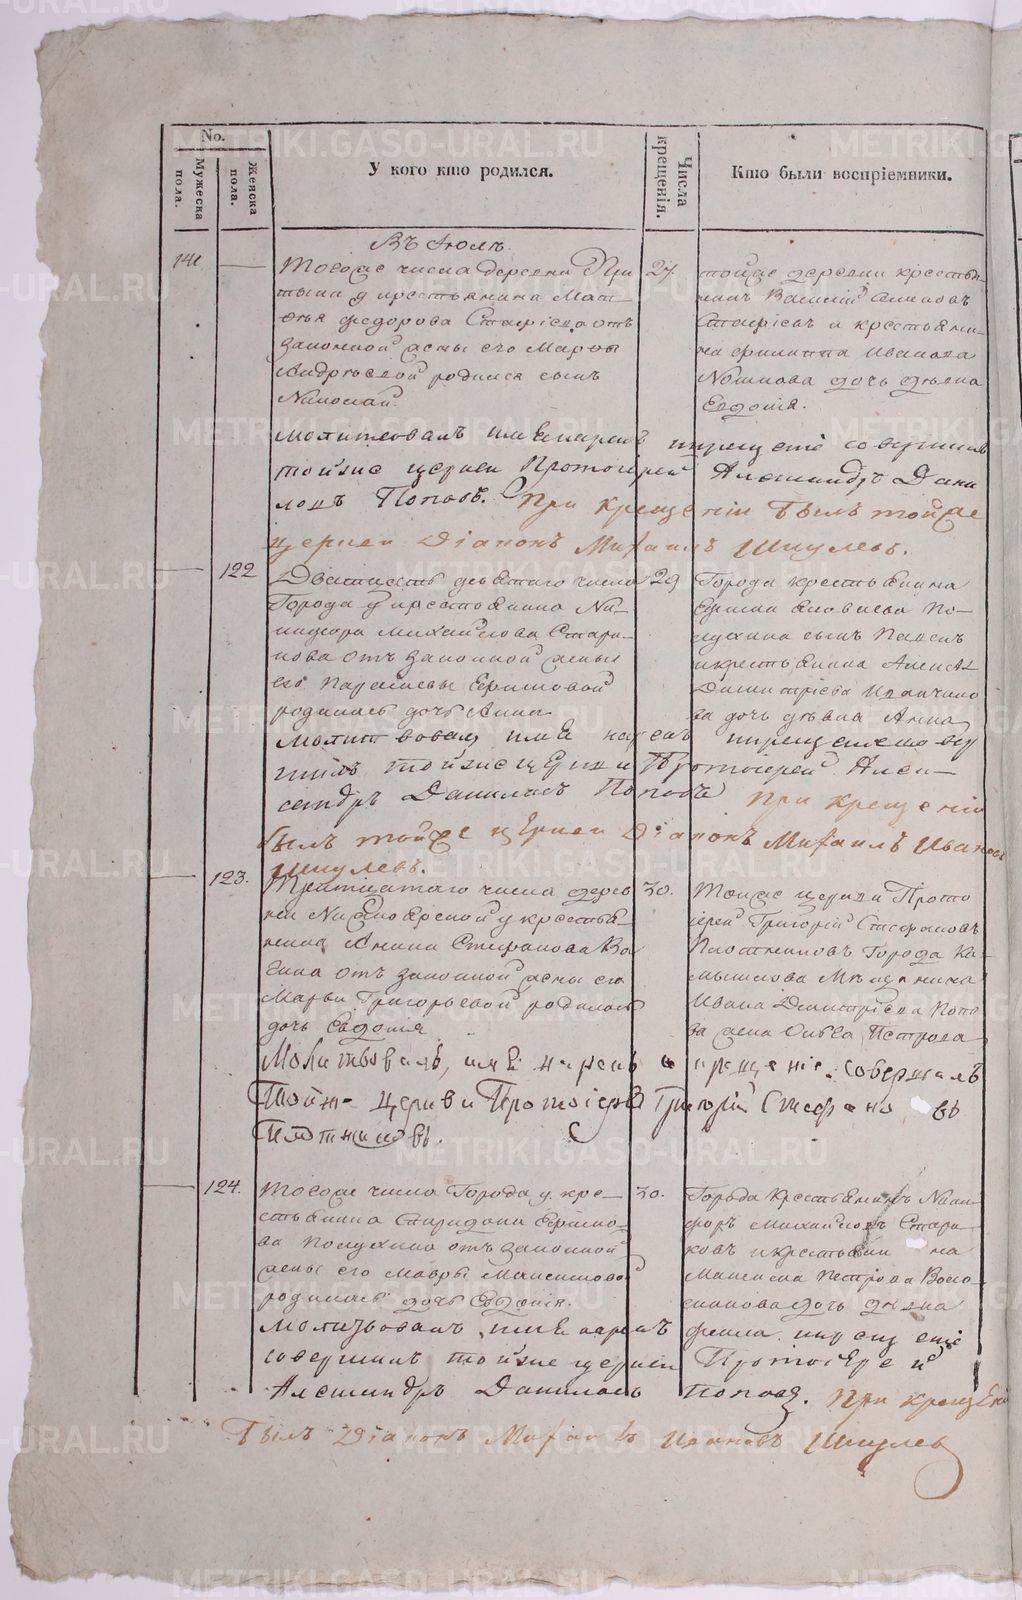 No.
Мужеска пола.
Женска пола.
У кого кто родился.
Числа крещенія.
Кто были воспріемники.
Въ Іюлѣ.
141
Тогоже числа деревни
у крестьянина Мат-
ѳея Федорова отъ
законной жены его Марѳы
Андреевой родился сынъ
Николай
27.
тойже деревни крестья-
нинъ Василій Семеновъ
и крестьяни-
на Филиппа Иванова
дочь дѣвка
Евдокія.
Молитвовалъ имя нарекъ и крещеніе совершилъ
тойже церкви Протоіерей Александръ Дани
ловъ Поповъ. При крещеніи былъ тойже
церкви Діаконъ Михаилъ Шкулевъ.
122
Двадцать девятаго числа
Города у крестьянина Ни-
кифора Михайлова Стари-
кова отъ законной жены
его Парасковьи Ефимовой
родилась дочь Анна
29
Города крестьянина
Ефима Яковлева По-
лухина сынъ Павелъ
и крестьянина Алексѣя
Димитріева
ва дочь дѣвка Анна
Молитвовалъ имя нарекъ и крещеніе совер
шилъ тойже церкви Протоіерей Алек-
сандръ Даниловъ Поповъ При крещеніи
былъ тойже церкви Діаконъ Михаилъ Ивановъ
Шкулевъ.
123.
Тритцатаго числа дерев
ни у крестья-
нина Стефанова Ва
гина отъ законной жены его
Марьи Григорьевой родилась
дочь Евдокія
30.
Тойже церкви Прото
іерей Григорій Стефановъ
Плотниковъ Города Ка-
мышлова Мѣщанина
Ивана Димитріева Попо
ва жена Ольга Петрова
Молитвовалъ, имя нарекъ и крещеніе совершалъ
Тойже Церкви Протоіерей Григорій Стефановъ
Плотниковъ.
124.
Тогоже числа Города у кре-
стьянина Спиридона Ефимо-
ва Полухина отъ законной
жены его Мавры Максимовой
родилась дочь Евдокія.
30.
Города Крестьянинъ Ники-
форъ Михайловъ Стари
ковъ и крестьянина
Максима Петрова
дочь дѣвка
Фекла. и крещеніе
Молитвовалъ имя нарекъ
совершилъ тойже церкви Протоіерей
Александръ Даниловъ Поповъ. При крещеніи
былъ Діаконъ Михаилъ Ивановъ Шкулевъ
METRIKI.GASO-URAL.RU